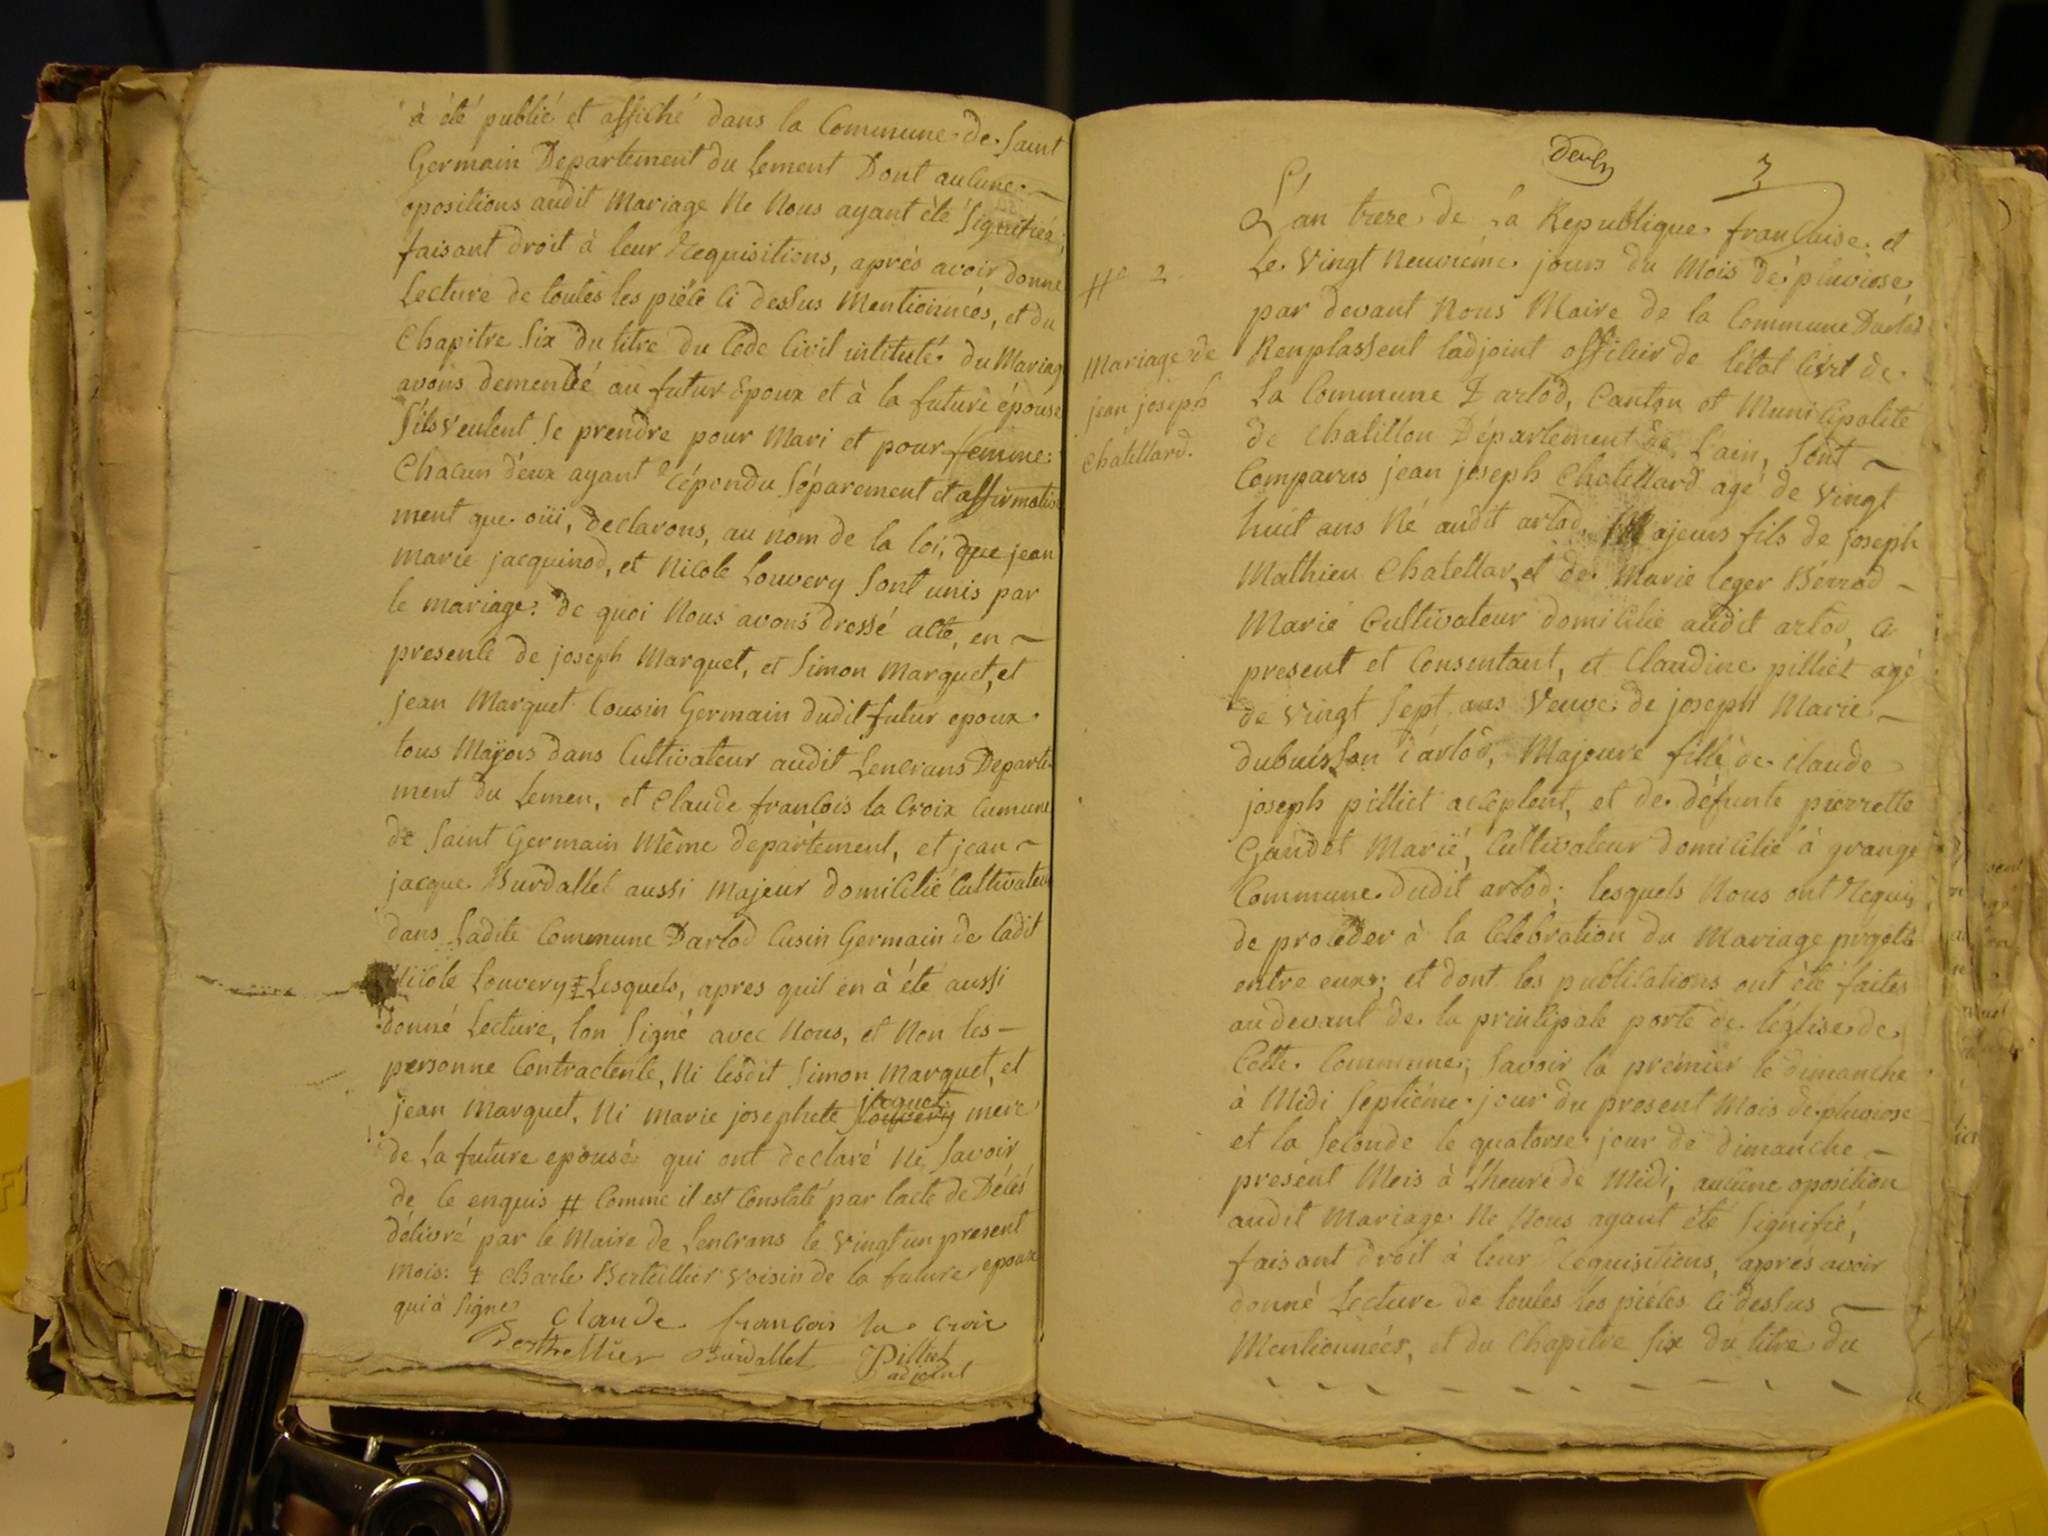 à été publié et affiché dans la Commune de Saint
Germain Département du Lement Dont aucune
opositions audit Mariage Ne Nous ayant été Signifiée;
faisant droit à leur Requisitions, après avoir donné
Lecture de toutes les pièce ci dessus Mentionnées, et du
Chapitre Six du titre du Code Civil intitulé du Mariag
avons demendé au futur Epoux et à la future épouse
s'ils veulent Se prendre pour Mari et pour femme:
Chacun d'eux ayant répondu Séparement et affirmative
ment que oüi, declarons, au nom de la loi, que jean
marie jacquinod, et Nicole Louvery Sont unis par
le mariage: de quoi Nous avons dressé acte, en
presence de joseph Marquet, et Simon Marquet, et
jean Marquet Cousin Germain dudit futur epoux
tous Majors dans Cultivateur audit Lencrans Departe
ment du Lemen, et Claude francois la Croix Cumune
de Saint Germain Même département, et jean
jacque Burdallet aussi Majeur domicilié Cultivateur
dans Ladite Commune Darlod Cusin Germain de ladit
Nicole Louvery ‡ Lesquels, apres quil en à été aussi
donné Lecture, lon Signé avec Nous, et Non les
personne Contractente, Ni lesdit Simon Marquet, et
jacquet
jean Marquet, Ni Marie josephete Louvery mere
de La future epouse qui ont declaré Ni Savoir
de ce enquis # Comme il est Constaté par lacte de Décès
délivré par le Maire de Lencrans le Vingt un present
Mois: ‡ Charle Bertellier Voisin de la future epoux
qui à Signé
Claude francois la croix
Berthellier Burdallet Pilliet
adjoint
3
L'an treze de La Republique francaise et
Le Vingt Neuvième jours du Mois de pluviose,
Nº 2
par devant Nous Maire de la Commune Darlod
Mariage de
jean joseph
Chatellard.
Remplassent ladjoint officier de létat Civil de
La Commune Darlod, Canton et Municipalité
de Chatillon Département de L'ain, Sont
Comparus jean joseph Chatellard agé de Vingt
huit ans Né audit arlod, Majeurs fils de joseph
Mathieu Chatellar, et de Marie Leger Berrod
Marié Cultivateur domicilié audit arlod, ci
present et Consentant, et Claudine pilliet agé
de Vingt Sept ans Veuve de joseph Marie
dubuisson d'arlod, Majeure fille de Claude
joseph pilliet acceptent, et de défunte pierrette
Gaudet Marié, Cultivateur domicilié à grange
Commune dudit arlod; lesquels Nous ont Requis
de proceder à la Celebration du Mariage projetté
entre eux; et dont les publications ont été faites
au devant de la principale porte de l'église de
Cette Commune; Savoir la premier le dimanche
à Midi Septième jour du present Mois de pluviose
et la Seconde le quatorze jour de dimanche
present Mois à L'heure de Midi, aucune oposition
audit Mariage Ne Nous ayant été Signifié,
faisant droit à leur Requisitions, après avoir
donné Lecture de toutes les pièces ci dessus
Mentionnées, et du Chapitre Six du titre du